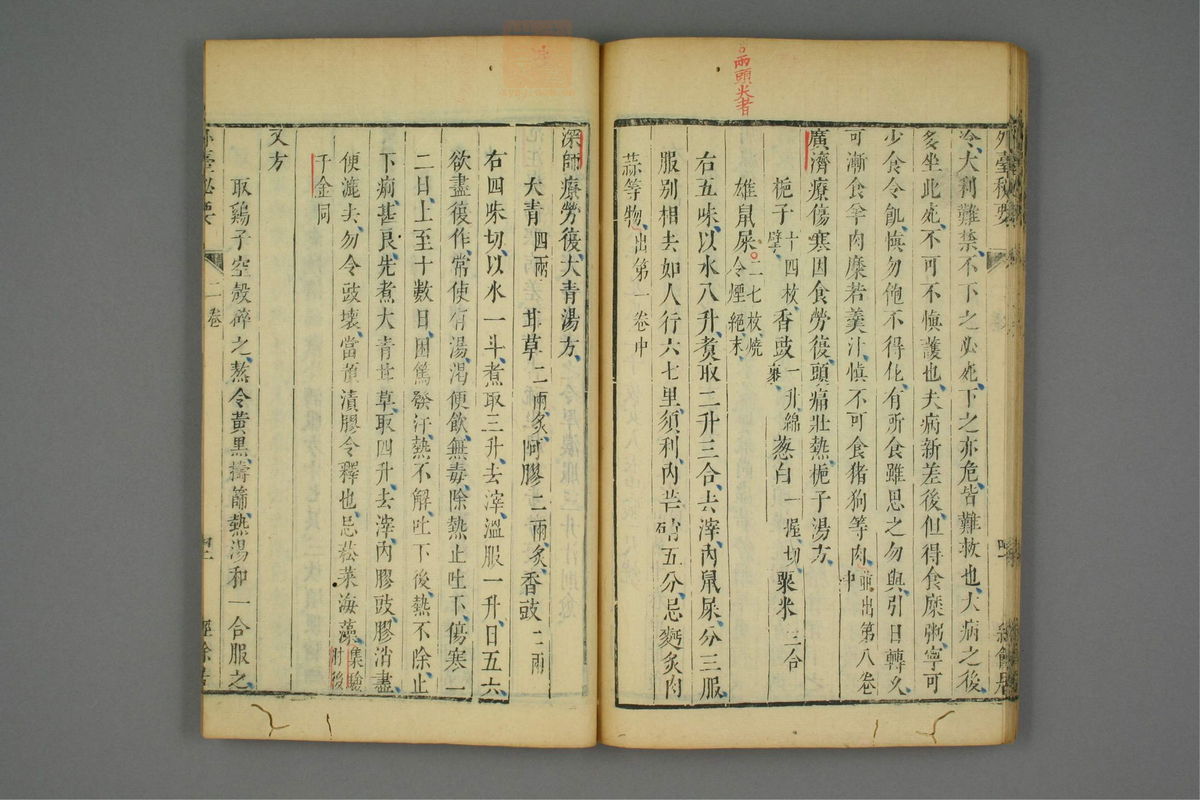 兩頭尖者
外臺秘要
冷大利難禁不下之必死下之亦危皆難救也大病之後
多坐此死不可不慎護也夫病新差後但得食糜粥寧可
少食令飢慎勿飽不得他有所食雖思之勿與引日轉久
可漸食羊肉糜若羹汁慎不可食猪狗等肉並出第八卷中
廣濟療傷寒因食勞復頭痛壯熱梔子湯方
梔子十四枚擘香豉一升綿裹葱白一握切粟米三合
雄鼠屎二七枚燒令煙絕末
右五味以水八升煮取二升三合去滓內鼠屎分三服
服別相去如人行六七里須利內芒硝五分忌麪炙肉
蒜等物出第一卷中
深師療勞復大青湯方
大青四兩甘草二兩炙阿膠二兩炙香豉二兩
右四味切以水一斗煮取三升去滓溫服一升日五六
欲盡復作常使有湯渴便飲無毒除熱止吐下傷寒一
二日上至十數日困篤發汗熱不解吐下後熱不除止
下痢甚良先煮大青甘草取四升去滓內膠豉膠消盡
便漉去勿令豉壞當預漬膠令釋也忌菘菜海藻集驗肘後
千金同
又方
取鷄子空殼碎之熬令黃黑擣篩熱湯和一合服之
二卷